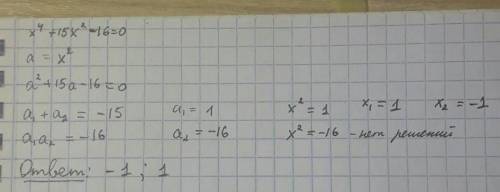 x⁴ + 15x² - 16 = 0
a = x²
a² + 15a - 16 = 0
a₁ + a₂ = -15 a₁ = 1 x² = 1 x₁ = 1 x₂ = -1
a₁a₂ = -16 a₂ = -16 x² = -16 - нет решений
Ответ: -1 ; 1